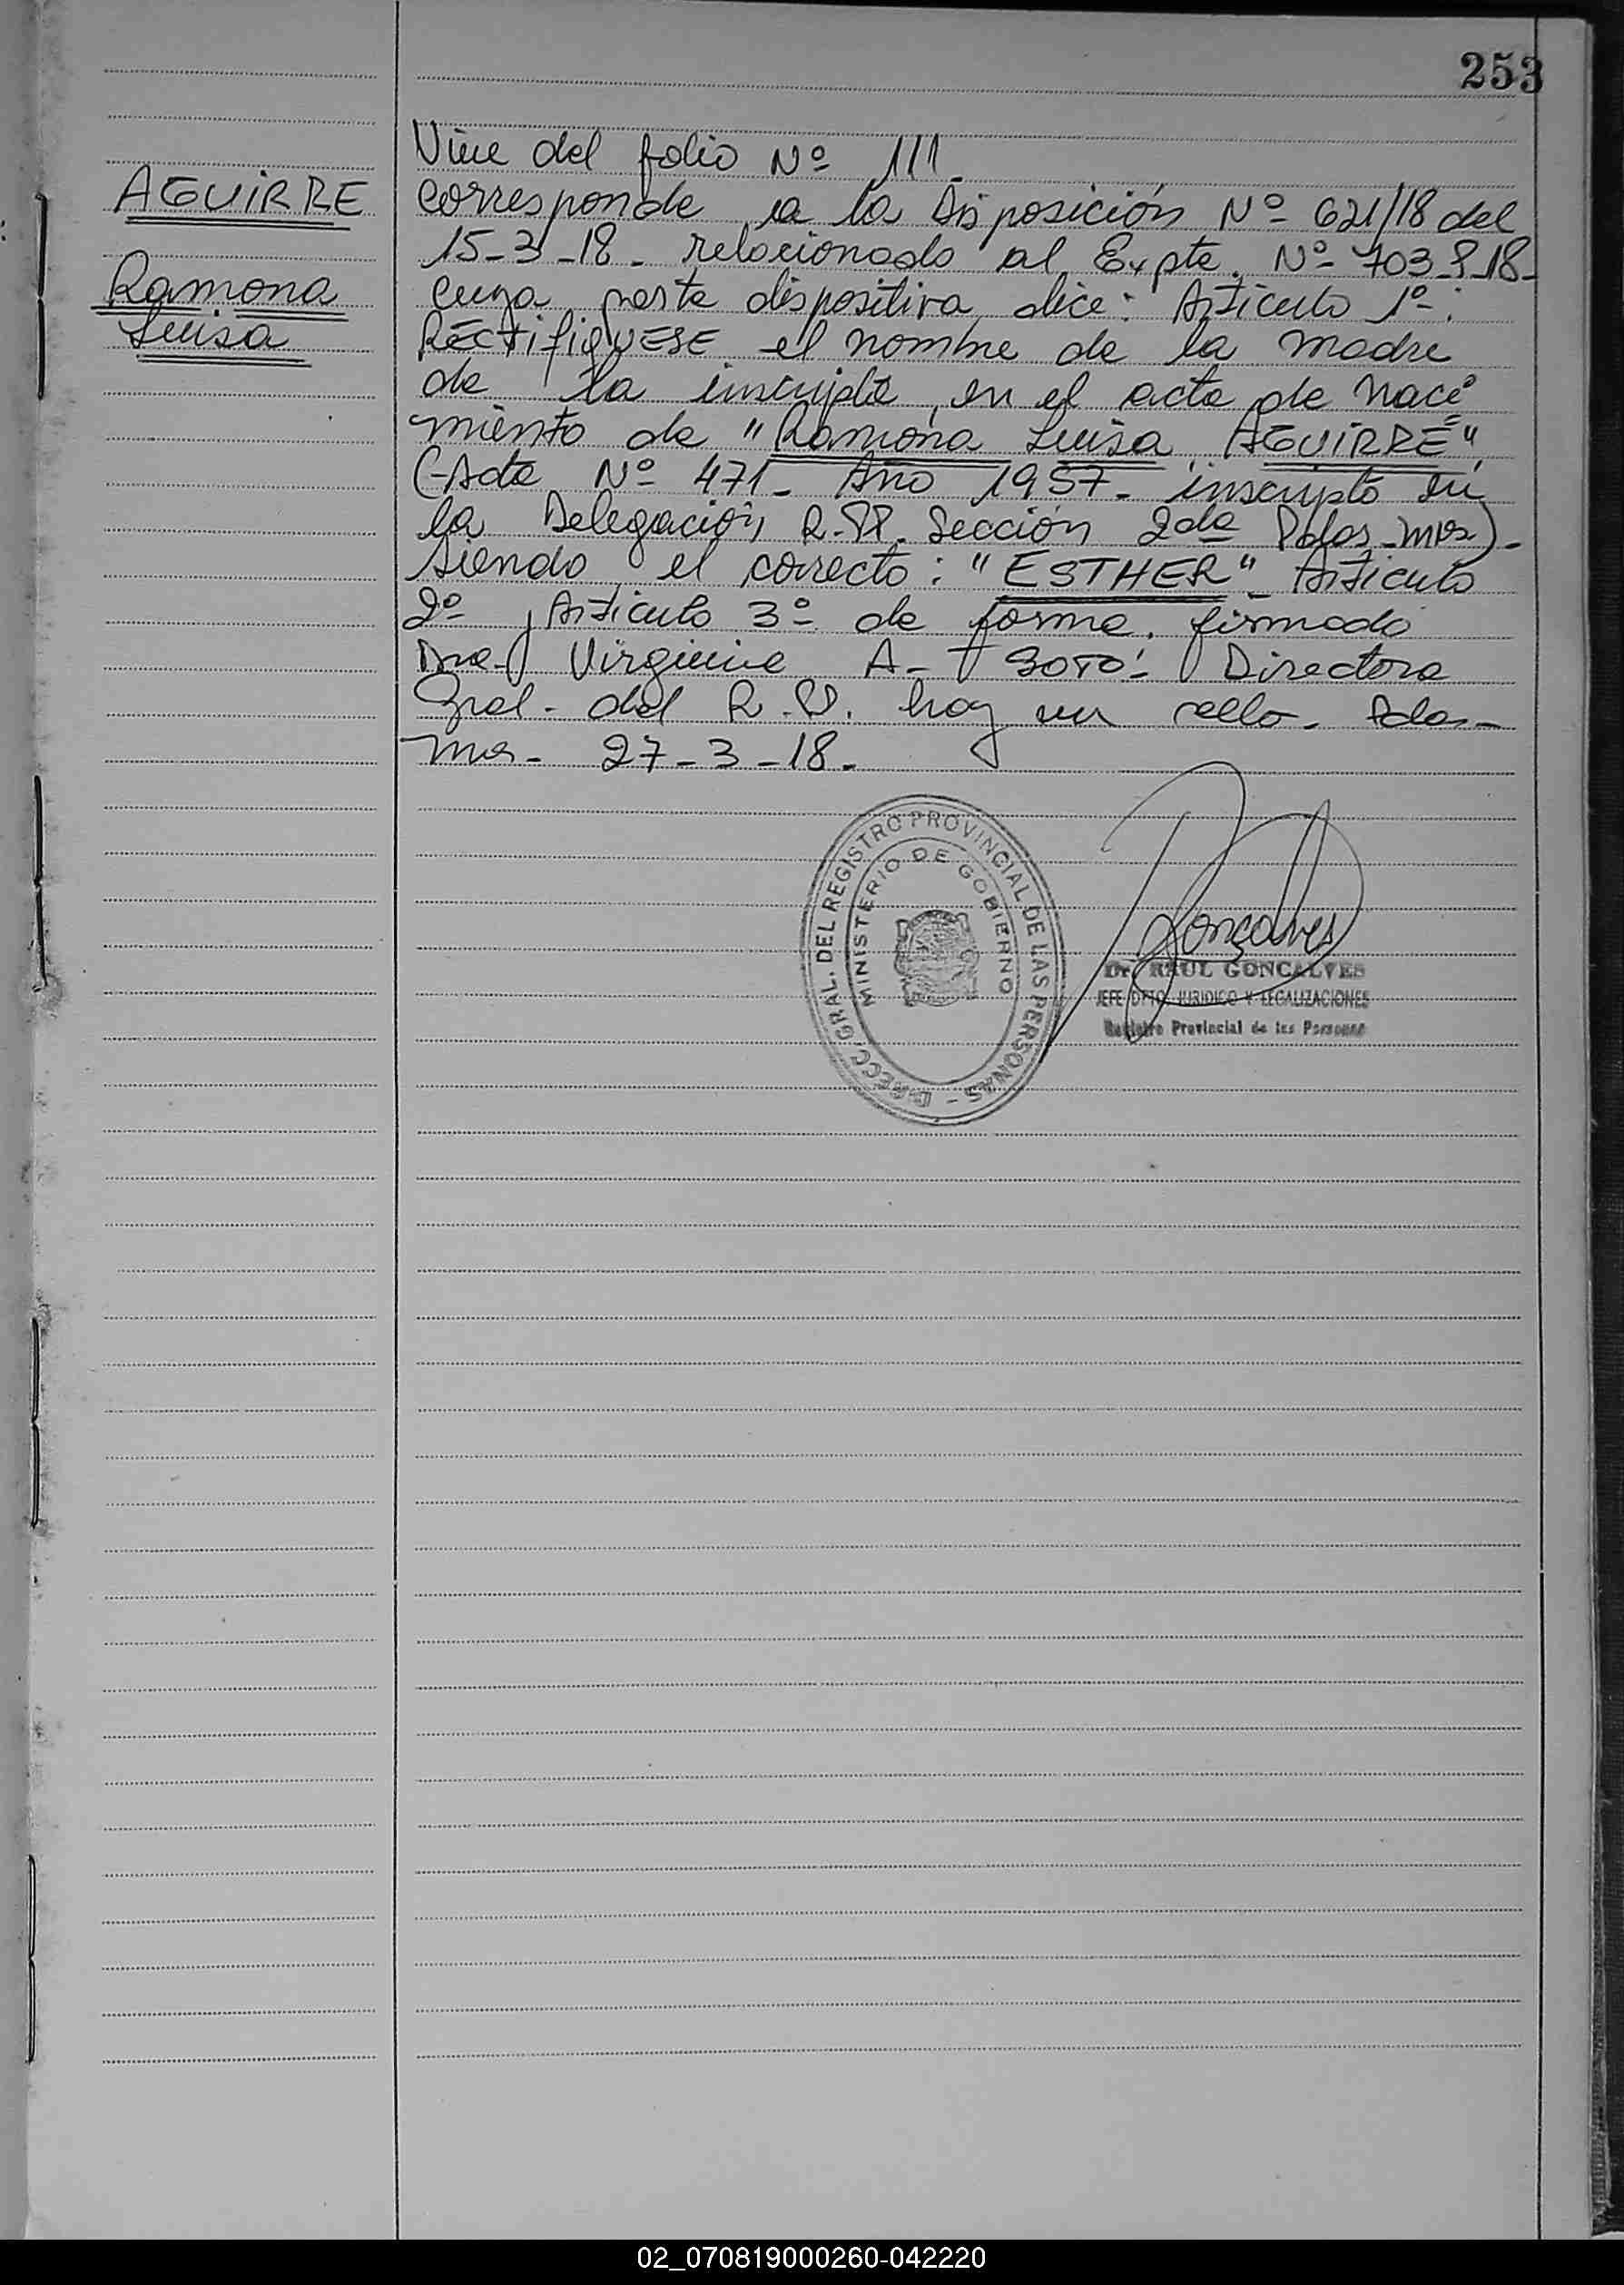 253
AGUIRRE
Ramona
Luisa
Viene del folio Nº 111.
Corresponde a la Disposición Nº 621/18 del
15-3-18. relacionado al Expte. Nº 703-P-18-
cuya parte dispositiva dice: Artículo 1º:
RECtifiqUESE el nombre de la madre
de la inscripta, en el acta de naci
miento de "Ramona Luisa AGUIRRE",
(Acta Nº 471- Año 1957- inscripto en
la Delegación R.PP. Sección 2da Pdas-Mnes)-
siendo el correcto: "ESTHER". Artículo
2º, Artículo 3º de forma. firmado
Dra. Virginia A- SOTO: Directora
Gral. del R.P. hay un sello. Pdas-
Mnes- 27-3-18.
DIRECC. GRAL. DEL REGISTRO PROVINCIAL DE LAS PERSONAS -
MINISTERIO DE GOBIERNO
Gonçalves
Dr. RAUL GONCALVES
JEFE DPTO. JURIDICO Y LEGALIZACIONES
Registro Provincial de las Personas
02_070819000260-042220